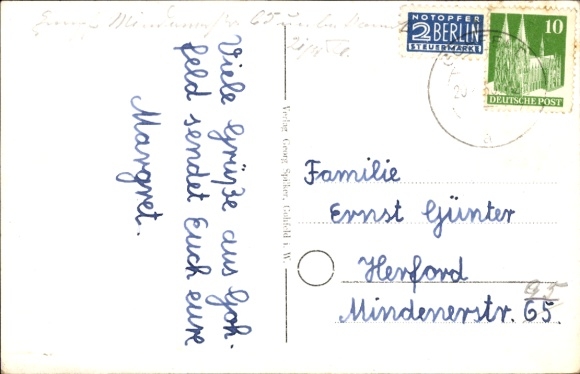 Viele Grüße aus Goh-
feld sendet Euch eure
Margret.
Verlag Georg
NOTOPFER
2 BERLIN
STEUERMARKE
10
DEUTSCHE POST
Familie
Ernst Günter
Herford
Mindenerstr. 65.